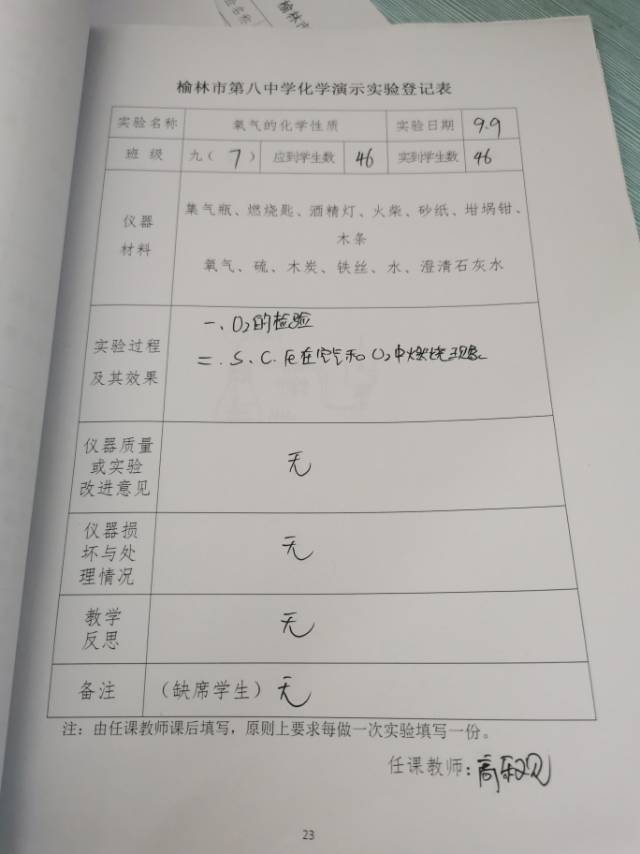 榆林市第八中学化学演示实验登记表
实验名称 氧气的化学性质 实验日期 9.9
班 级 九（ 7 ） 应到学生数 46 实到学生数 46
仪器
材料
集气瓶、燃烧匙、酒精灯、火柴、砂纸、坩埚钳、
木条
氧气、硫、木炭、铁丝、水、澄清石灰水
实验过程
及其效果
一、O₂的检验
二、S、C、Fe在空气和O₂中燃烧现象
仪器质量
或实验
改进意见
无
仪器损
坏与处
理情况
无
教学
反思
无
备注 （缺席学生）无
注：由任课教师课后填写，原则上要求每做一次实验填写一份。
任课教师：高
23